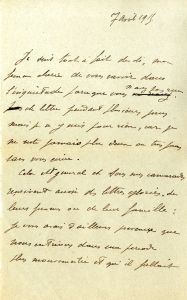 7 avril 1915
Je suis tout à fait désolé, mon
de vous savoir dans
l'inquiétude parce que vous n'avez pas reçu
de lettre pendant plusieurs jours
mais je n'y suis pour rien, car je
ne reste jamais plus deux ou trois jours
sans vous écrire.
et tous nos camarades
reçoivent aussi des lettres
de leurs femmes ou de leur famille.
Je vous avais d'ailleurs prévenue que
nous entrions dans une période
plus mouvementée et qu'il fallait